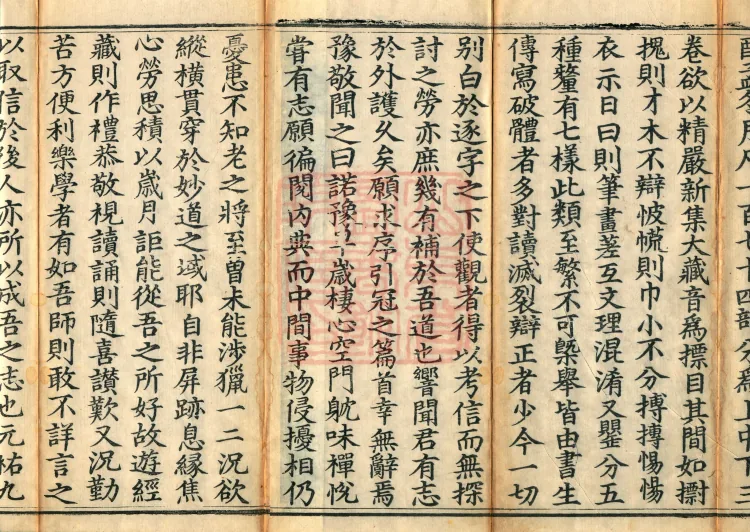 卷欲以精嚴新集大藏音為摽目其間如擲
槐則才木不辯怶㡃則巾小不分摶摶惕惕
衣示日曰則筆畫差互文理混淆又瞾分五
種釐有七樣此類至繁不可槩舉皆由書生
傳寫破體者多對讀滅裂辯正者少今一切
別白於逐字之下使觀者得以考信而無探
討之勞亦庶幾有補於吾道也嚮聞君有志
於外護久矣願求序引冠之篇首幸無辭焉
豫敬聞之曰諾豫行年歲棲心空門躭味禪悅
嘗有志願徧閱内典而中間事物侵擾相仍
憂患不知老之將至曾未能涉獵一二況欲
縱橫貫穿於妙道之域耶自非屏跡息緣焦
心勞思積以歲月詎能從吾之所好故遊經
藏則作禮恭敬視讀誦則隨喜讃歎又況勤
苦方便利樂學者有如吾師則敢不詳言之
以取信於後人亦所以成吾之志也元祐九